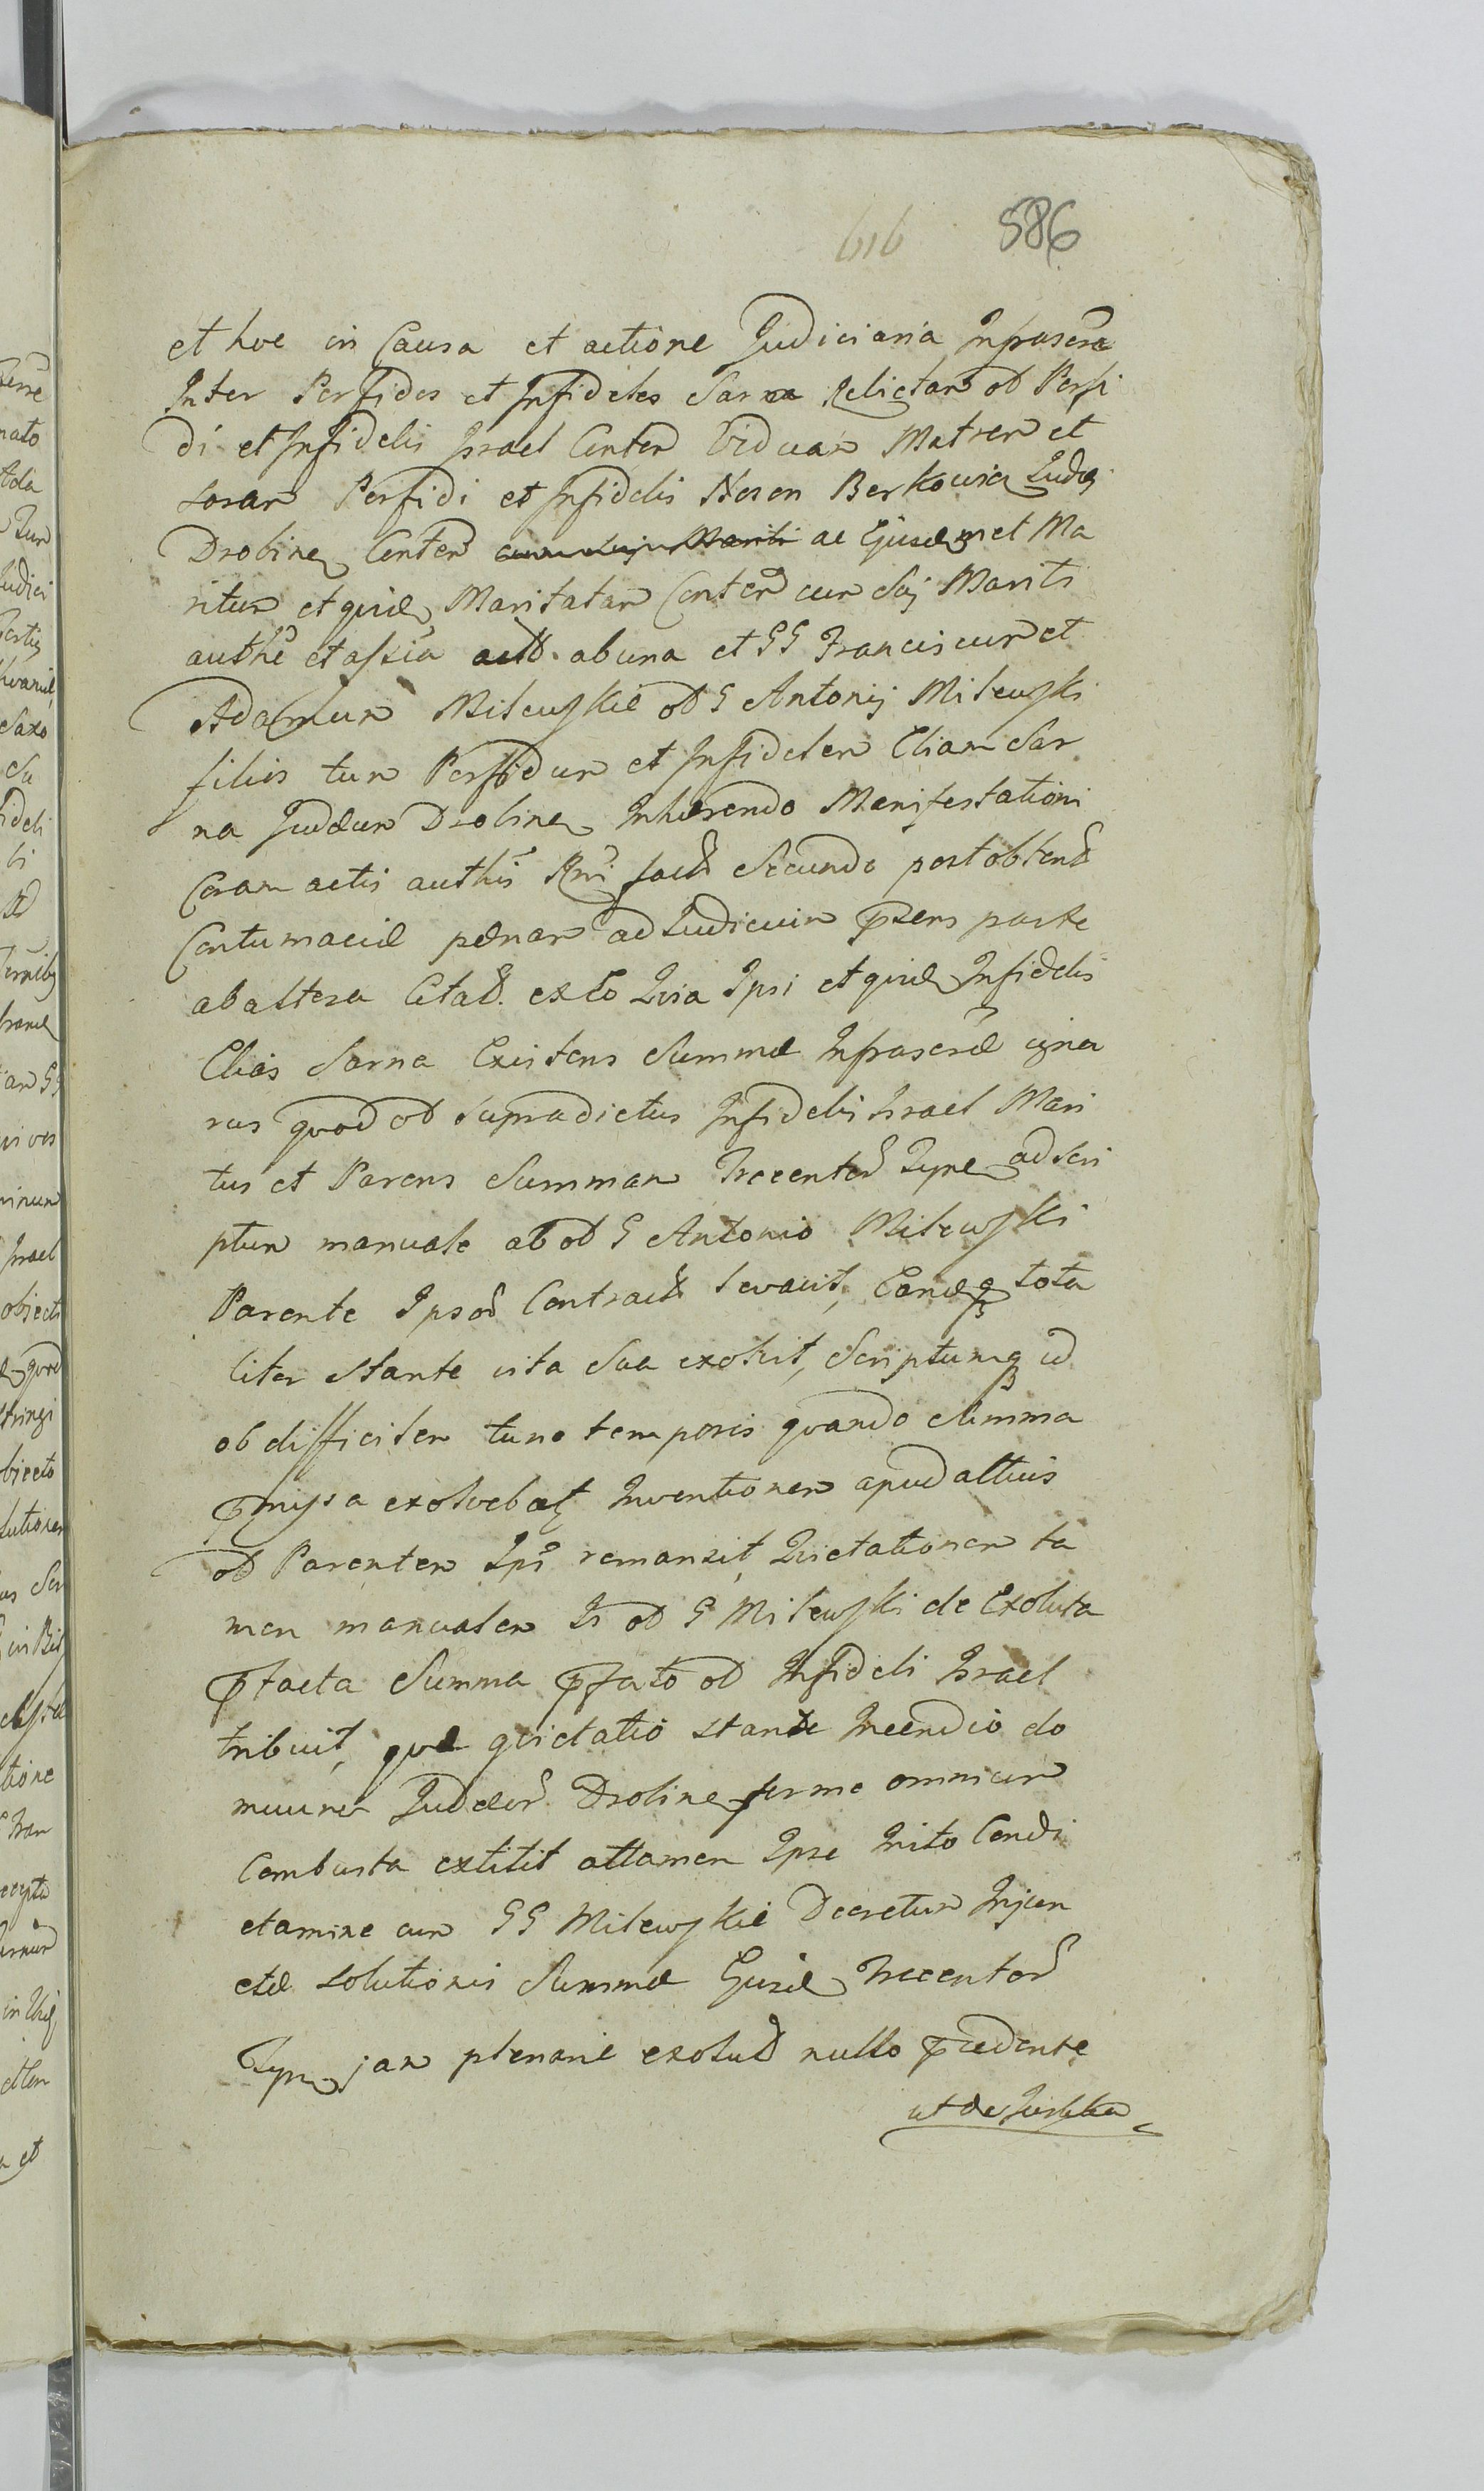 616 586
et hoc in Causa et actione Judiciaria Infrascra
Inter Perfidos et Infideles Sarna Relictam od Perfi
di et Infidelis Israel Conten Viduam Matrem et
sosam Perfidi et Infidelis Nosen Berkowicz Judei
Drobine Conten ac Ejusdemet Ma
ritum et quide Maritatam Conten cum Sui Mariti
authe et assia actd. ab una et GG Franciscum et
Adamum Milewskie od G Antonij Milewski
filios tum Perfidum et Infidelem Eliam Sar
na Judæum Drobine Inhærendo Manifestationi
Coram actis authis Rni factd Secundo post obtend
Contumaciæ pænam ad Judicium præns parte
ab altera Citatd. ex eo Quia Ipsi et quide Infidelis
Elias Sarna Existens Summæ Infrascræ igna
rus quod od supradictus Infidelis Israel Mari
tus et Parens Summam Trecentd Tynf ad scri
ptum manuale ab od G Antonio Milewski
Parente Ipsod Contractd levavit, Eandeq tota
liter stante vita Sua exolvit, Scriptumq id
ob difficilem tunc temporis quando Summa
pmissa exolvebat Inventionem apud altius
od Parentem Ips remansit, Quietationem ta
men manualem Is od G Milewski de Exoluta
ptacta Summa pfato od Infideli Israel
tribuit, quæ quietatio stante Incendio do
muum Judæord. Drobine ferme omnium
Combusta extitit attamen Ipse Inito Condi
ctamine cum GG Milewskie Decretum Injun
ctæ solutionis Summæ Ejusde Trecentord
Tynf jam plenarie exolutd nullo pcedente
ut de Justitia